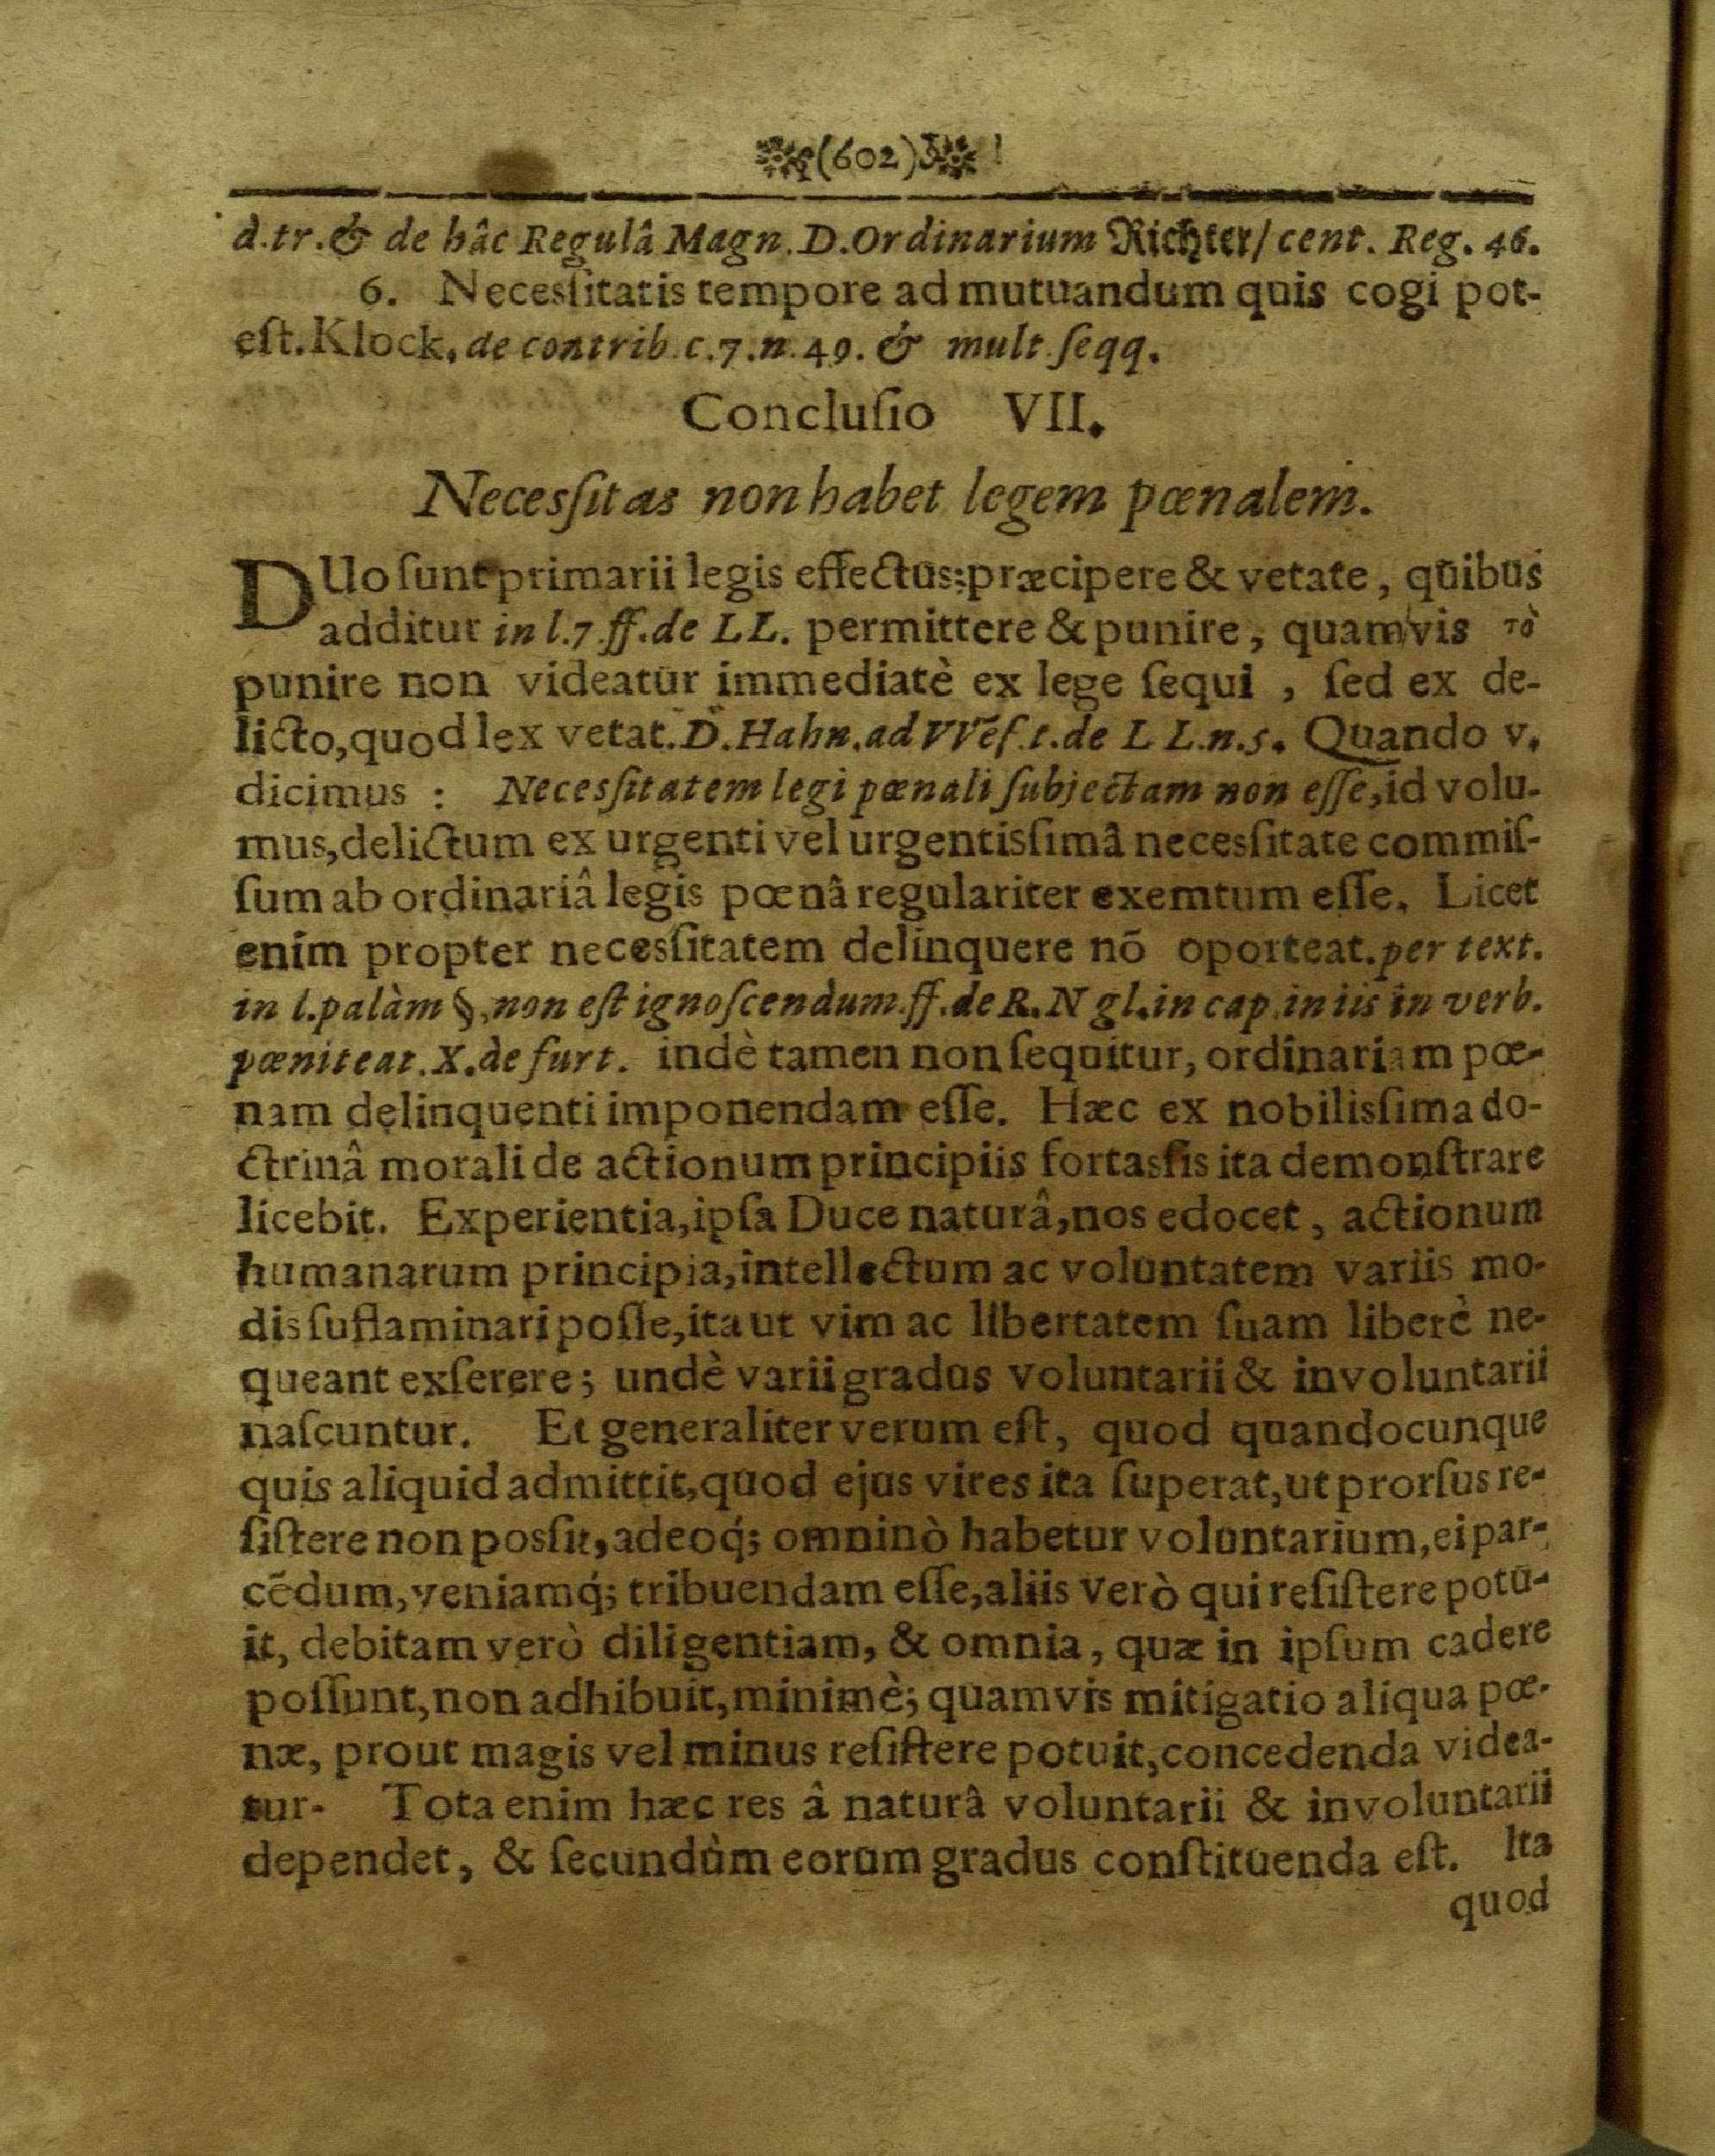 (602)
d.tr.& de hâc Regulâ Magn.D.Ordinarium Richter/ cent. Reg. 46.
6. Necesſitatis tempore ad mutuandum quis cogi pot-
eſt.Klock. de contrib.c.7.n.49.& mult ſeqq.
Concluſio VII.
Necesſitas non habet legem pœnalem.
DUo ſunt primarii legis effectus:præcipere & vetate, quibus
additur in l.7.ff.de LL. permittere & punire, quamvis τὸ
punire non videatur immediatè ex lege ſequi , ſed ex de-
licto,quod lex vetat.D.Hahn.ad VVeſ.t.de L L.n.5. Quando v.
dicimus : Necesſitatem legi pœnali ſubjectam non eſſe,id volu-
mus,delictum ex urgenti vel urgentisſimâ necesſitate commiſ-
ſum ab ordinariâ legis pœnâ regulariter exemtum eſſe. Licet
enim propter necesſitatem delinquere nō oporteat.per text.
in l.palàm §.non eſt ignoſcendum.ff.de R.N gl.in cap.in iis in verb.
pœniteat.X.de furt. indè tamen non ſequitur, ordinariam pœ-
nam delinquenti imponendam eſſe. Hæc ex nobilisſima do-
ctrinâ morali de actionum principiis fortasſis ita demonſtrare
licebit. Experientia,ipſa Duce naturâ,nos edocet, actionum
humanarum principia,intellectum ac voluntatem variis mo-
dis ſuflaminari poſſe,ita ut vim ac libertatem ſuam liberè ne-
queant exſerere; undè varii gradus voluntarii & involuntarii
naſcuntur. Et generaliter verum eſt, quod quandocunque
quis aliquid admittit,quod ejus vires ita ſuperat,ut prorſus re-
ſiſtere non posſit,adeoq́; omninò habetur voluntarium,ei par-
cēdum,veniamq́; tribuendam eſſe,aliis verò qui reſiſtere potu-
it, debitam verò diligentiam, & omnia, quæ in ipſum cadere
poſſunt,non adhibuit,minimè; quamvis mitigatio aliqua pœ-
næ, prout magis vel minus reſiſtere potuit,concedenda videa-
tur- Tota enim hæc res â naturâ voluntarii & involuntarii
dependet, & ſecundùm eorum gradus conſtituenda eſt. Ita
quod